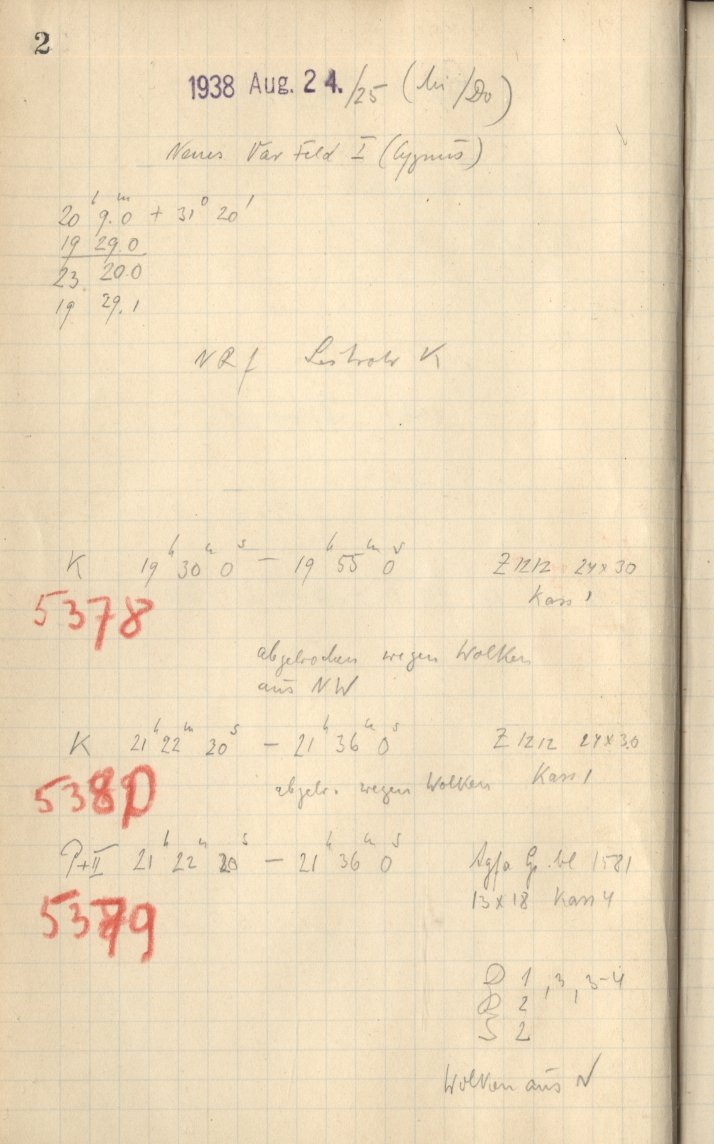 2
1938 Aug. 24./25 ( /Do)
Neues Var Feld I (Cygnus)
20h 9.m0 + 31° 20'
19 29.0
23 20.0
19 29.1
NRf Leitrohr K
K 19h 30m 0s — 19h 55m 0s Z 1212 24x30
Kass 1
5378
abgebrochen wegen Wolken
aus NW
K 21h 22m 20s — 21h 36m 0s Z 1212 24x30
5380 abgebr. wegen Wolken Kass 1
P+II 21h 22m 20s — 21h 36m 0s Agfa bl 1581
13x18 Kass 4
5379
D 1, 3, 3-4
2
S 2
Wolken aus N